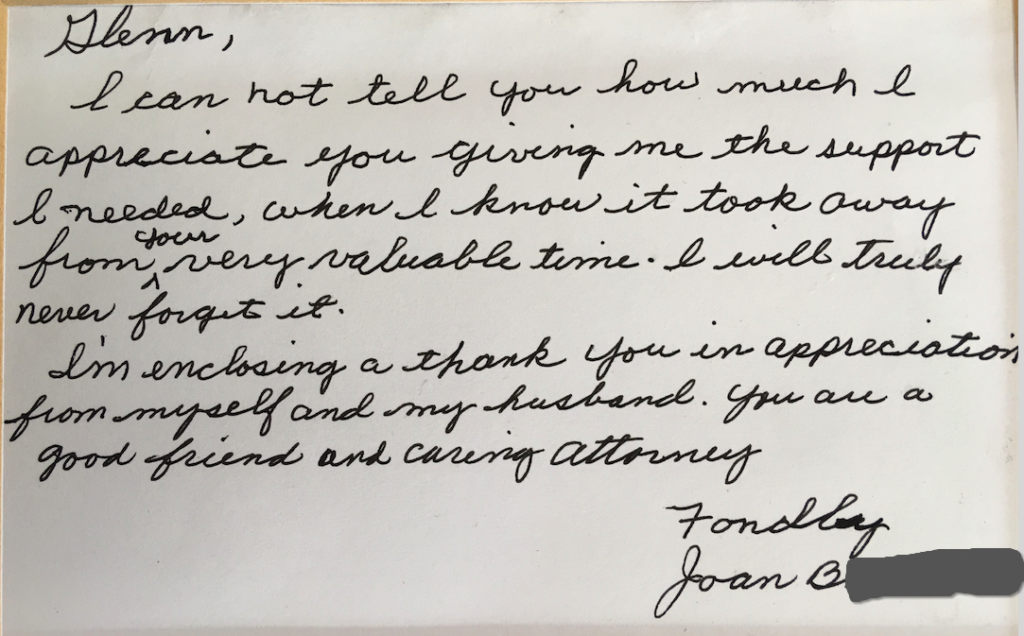 Glenn,
I can not tell you how much I
appreciate you giving me the support
I needed, when I know it took away
from your very valuable time. I will truly
never forget it.
I'm enclosing a thank you in appreciation
from myself and my husband. You are a
good friend and caring attorney
Fondly
Joan B